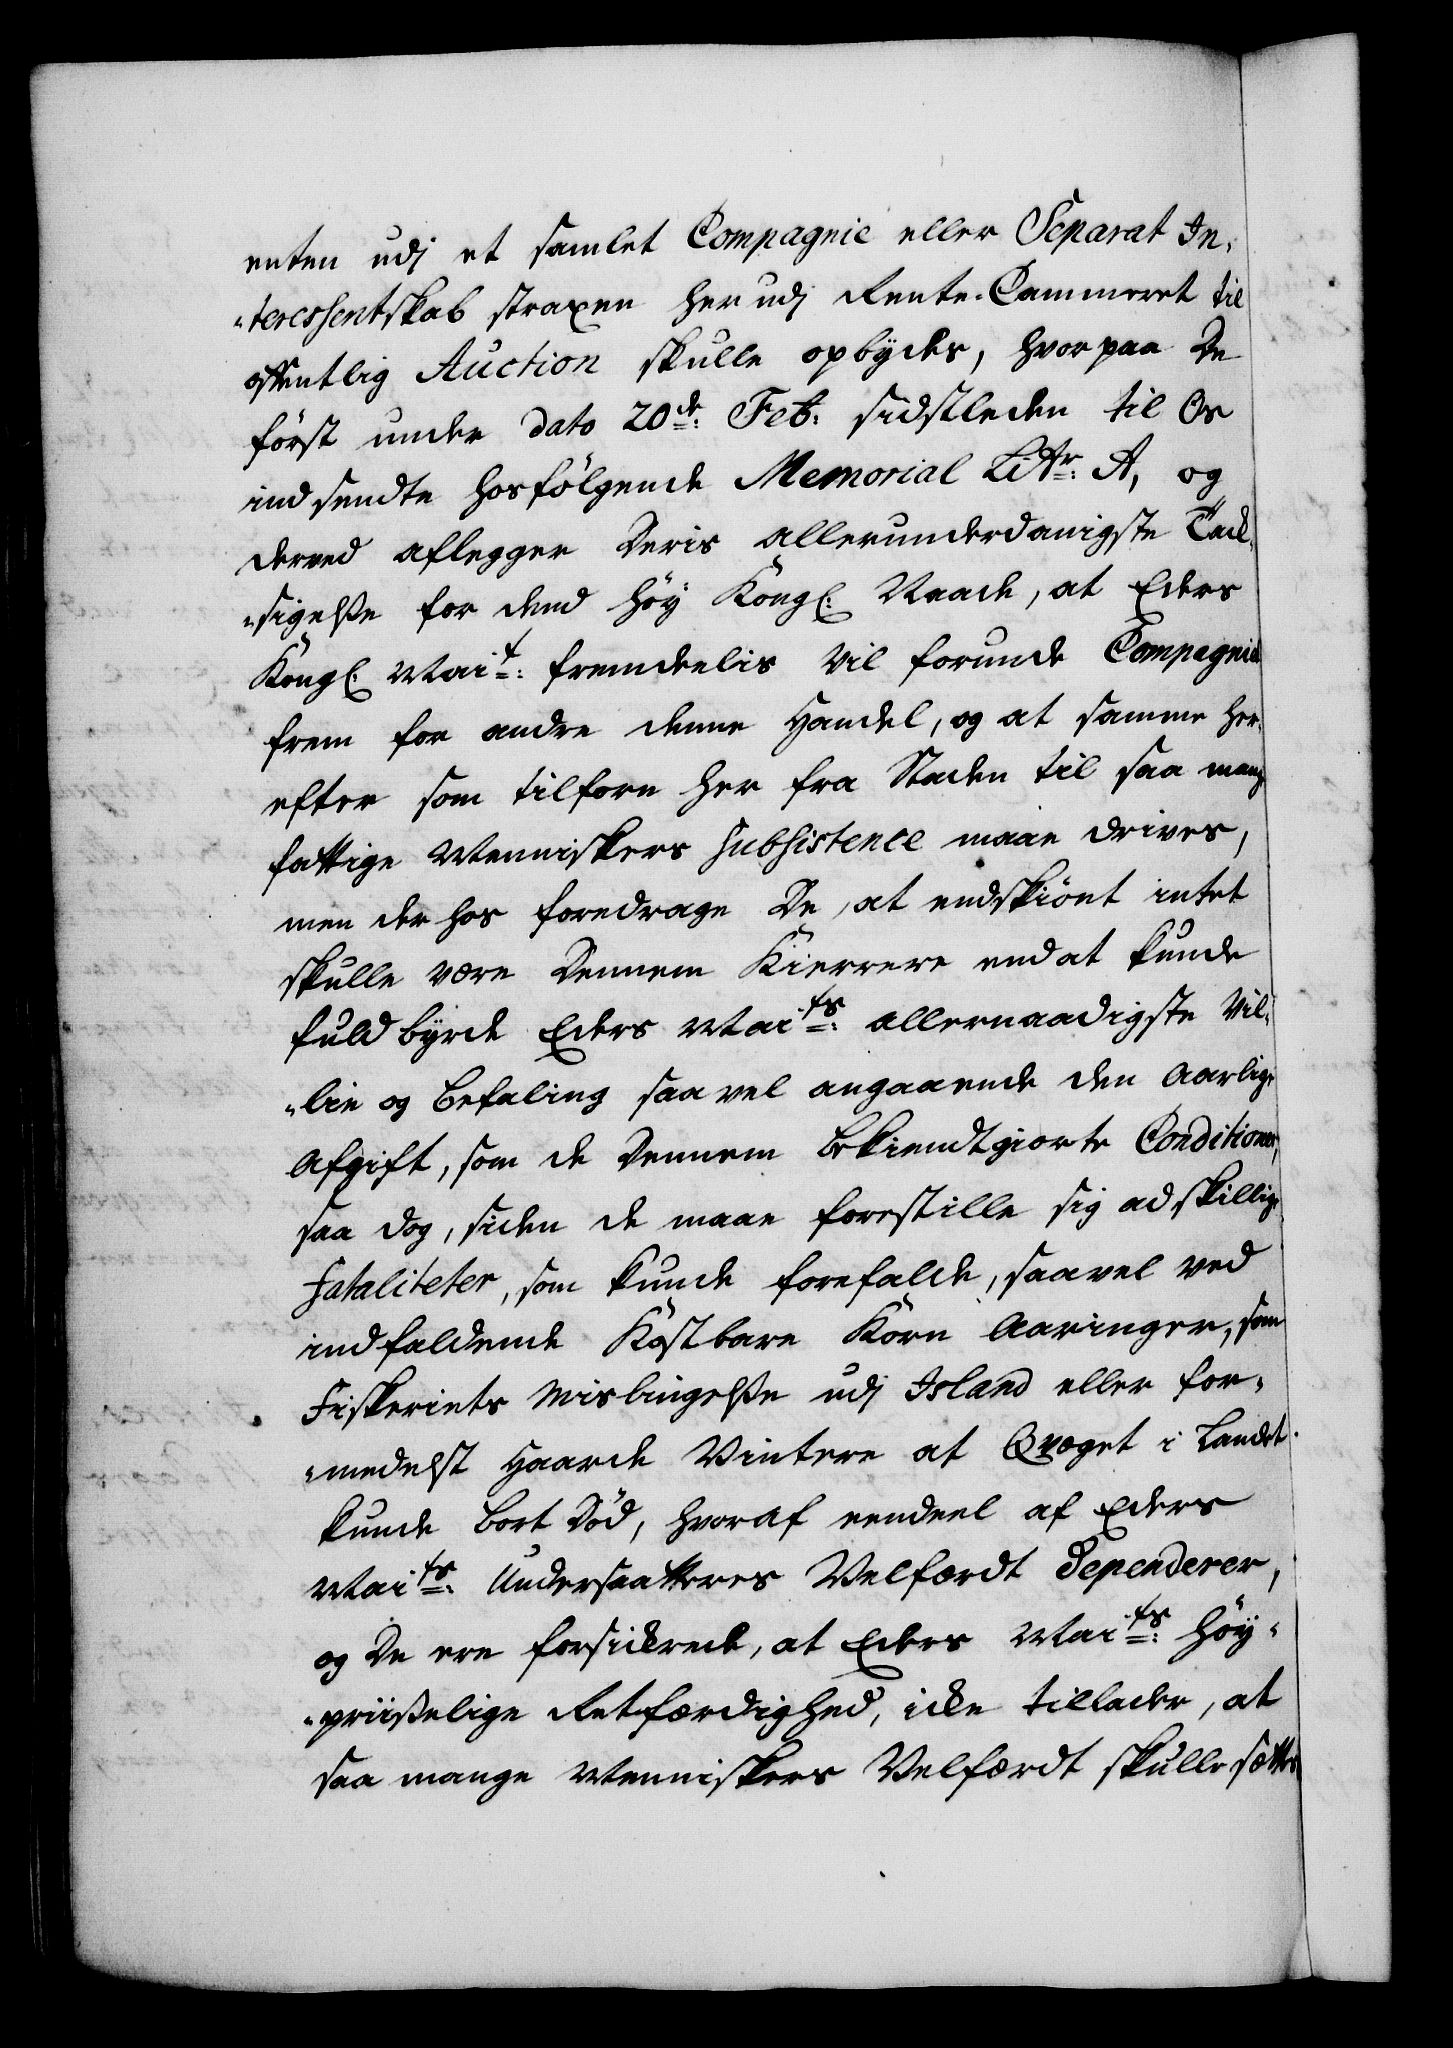 enten udj et samlet Compagnie eller Separat In-
-teressentskab straxen her udj Rente-Cammeret til
offentlig Auction skulle opbÿdes, hvorpaa De
först under dato 20de Feb: sidstleden til Os
indsendte hosfölgende Memorial Littr: A, og
derved aflegger Deris allerunderdanigste Tack-
-sigelße for dend höÿ Kongl: Naade, at Eders
Kongl: Mait: fremdeelis vil forunde Compagniet
frem for andre denne Handel, og at samme her-
efter som tilforn her fra Staden til saa mange
fattige Menniskers Subsistence maae drives,
men der hos foredrage De, at endskiönt intet
skulle være Dennem Kierrere end at kunde
fuldbÿrde Eders Maits: allernaadigste Vil-
-lie og befaling saavel angaaende den Aarlige
Afgift, som de Dennem bekiendtgiorte Conditioner,
saa dog, siden de maae forestille sig adskillige
Fataliteter, som kunde forefalde, saavel ved
indfaldende Kostbare Korn Aaringer, som
Fiskeriets Mislingelße udj Island eller for-
-medelst Haarde Vintere at Qvæget i Landet
kunde bort Död, hvoraf eendeel af Eders
Maits: Undersaatteres Velfærdt Dependerer,
og De ere forsickrede, at Eders Maits: Höÿ-
-priißelige Retfærdighed, icke tillader, at
saa mange Menniskers Velfærdt skulle sættes